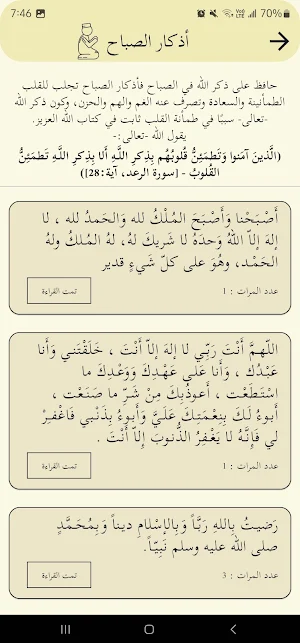 7:46
70%
أذكار الصباح
حافظ على ذكر الله في الصباح فأذكار الصباح تجلب للقلب
الطمأنينة والسعادة وتصرف عنه الغم والهم والحزن، وكون ذكر الله
-تعالى- سببًا في طمأنة القلب ثابت في كتاب الله العزيز.
يقول الله -تعالى-:
(الَّذينَ آمَنوا وَتَطمَئِنُّ قُلوبُهُم بِذِكرِ اللَّهِ أَلا بِذِكرِ اللَّهِ تَطمَئِنُّ
القُلوبُ - [سورة الرعد، آية:28])
أَصْبَحْنا وَأَصْبَحَ المُلْكُ لله وَالحَمدُ لله ، لا
إلهَ إلاّ اللهُ وَحدَهُ لا شَريكَ لهُ، لهُ المُلكُ ولهُ
الحَمْد، وهُوَ على كلّ شَيءٍ قدير
عدد المرات : 1
تمت القراءة
اللّهمَّ أَنْتَ رَبِّي لا إلهَ إلاّ أَنْتَ ، خَلَقْتَني وَأَنا
عَبْدُك ، وَأَنا عَلى عَهْدِكَ وَوَعْدِكَ ما
اسْتَطَعْت ، أَعوذُبِكَ مِنْ شَرِّ ما صَنَعْت ،
أَبوءُ لَكَ بِنِعْمَتِكَ عَلَيَّ وَأَبوءُ بِذَنْبي فَاغْفِرْ
لي فَإِنَّهُ لا يَغْفِرُ الذُّنوبَ إِلاّ أَنْتَ .
عدد المرات : 1
تمت القراءة
رَضيتُ بِاللهِ رَبَّاً وَبِالإسْلامِ ديناً وَبِمُحَمَّدٍ
صلى الله عليه وسلم نَبِيّاً.
عدد المرات : 3
تمت القراءة